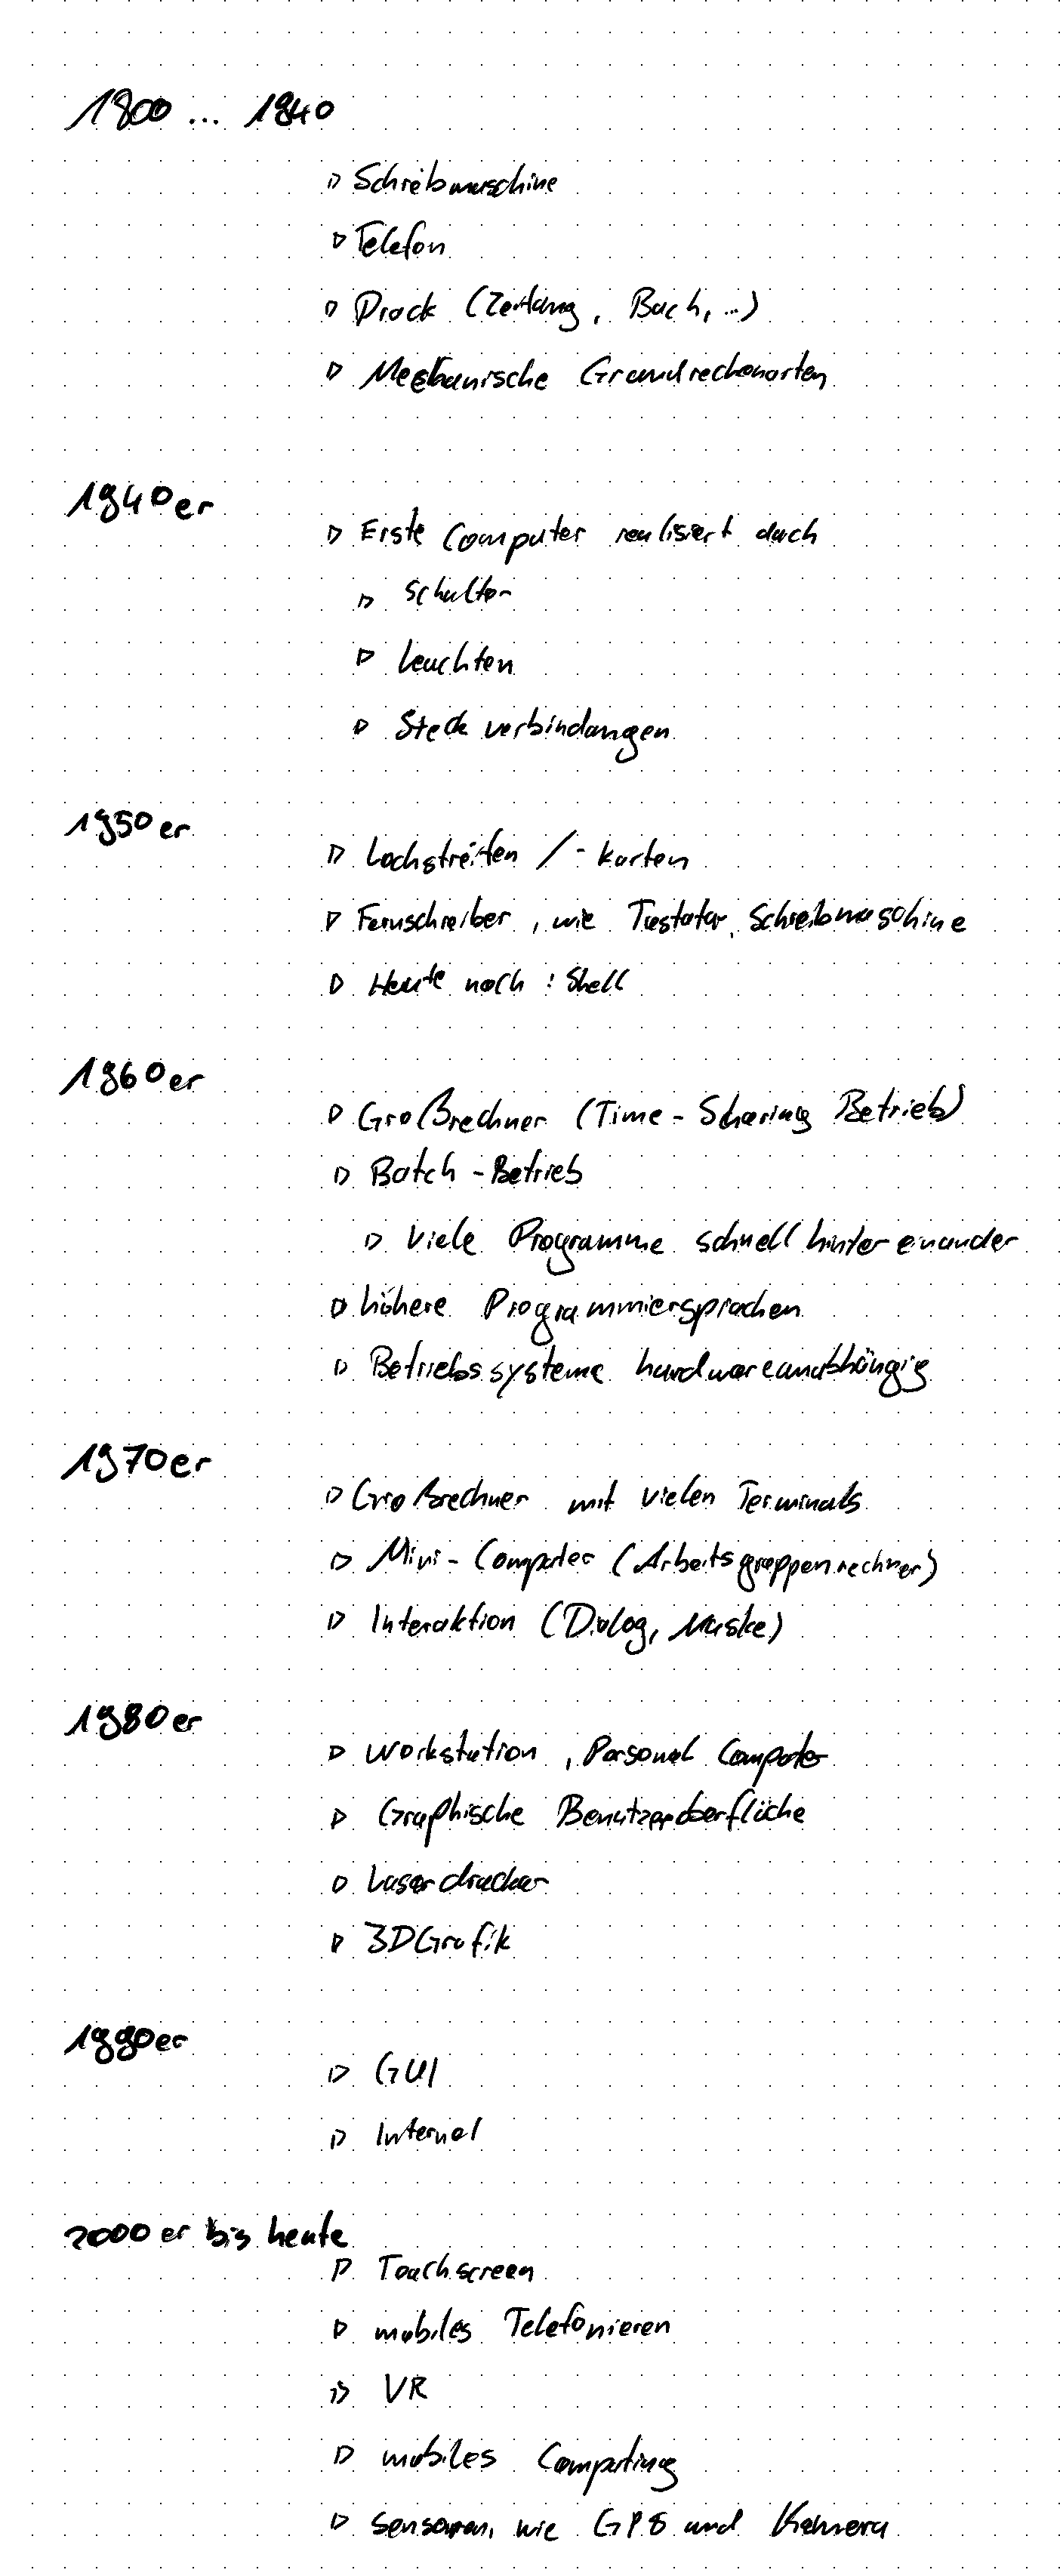 1800 ... 1940
▷ Schreibmaschine
▷ Telefon
▷ Druck (Zeitung, Buch, ...)
▷ Mechanische Grundrechenarten
1940er
▷ Erste Computer realisiert durch
▷ Schalter
▷ Leuchten
▷ Steckverbindungen
1950er
▷ Lochstreifen / -karten
▷ Fernschreiber, wie Tastatur, Schreibmaschine
▷ Heute noch: Shell
1960er
▷ Großrechner (Time-Sharing Betrieb)
▷ Batch-Betrieb
▷ Viele Programme schnell hintereinander
▷ höhere Programmiersprachen
▷ Betriebssysteme hardwareunabhängig
1970er
▷ Großrechner mit vielen Terminals
▷ Mini-Computer (Arbeitsgruppenrechner)
▷ Interaktion (Dialog, Maske)
1980er
▷ Workstation, Personal Computer
▷ Graphische Benutzeroberfläche
▷ Laserdrucker
▷ 3D Grafik
1990er
▷ GUI
▷ Internet
2000er bis heute
▷ Touchscreen
▷ mobiles Telefonieren
▷ VR
▷ mobiles Computing
▷ Sensoren, wie GPS und Kamera